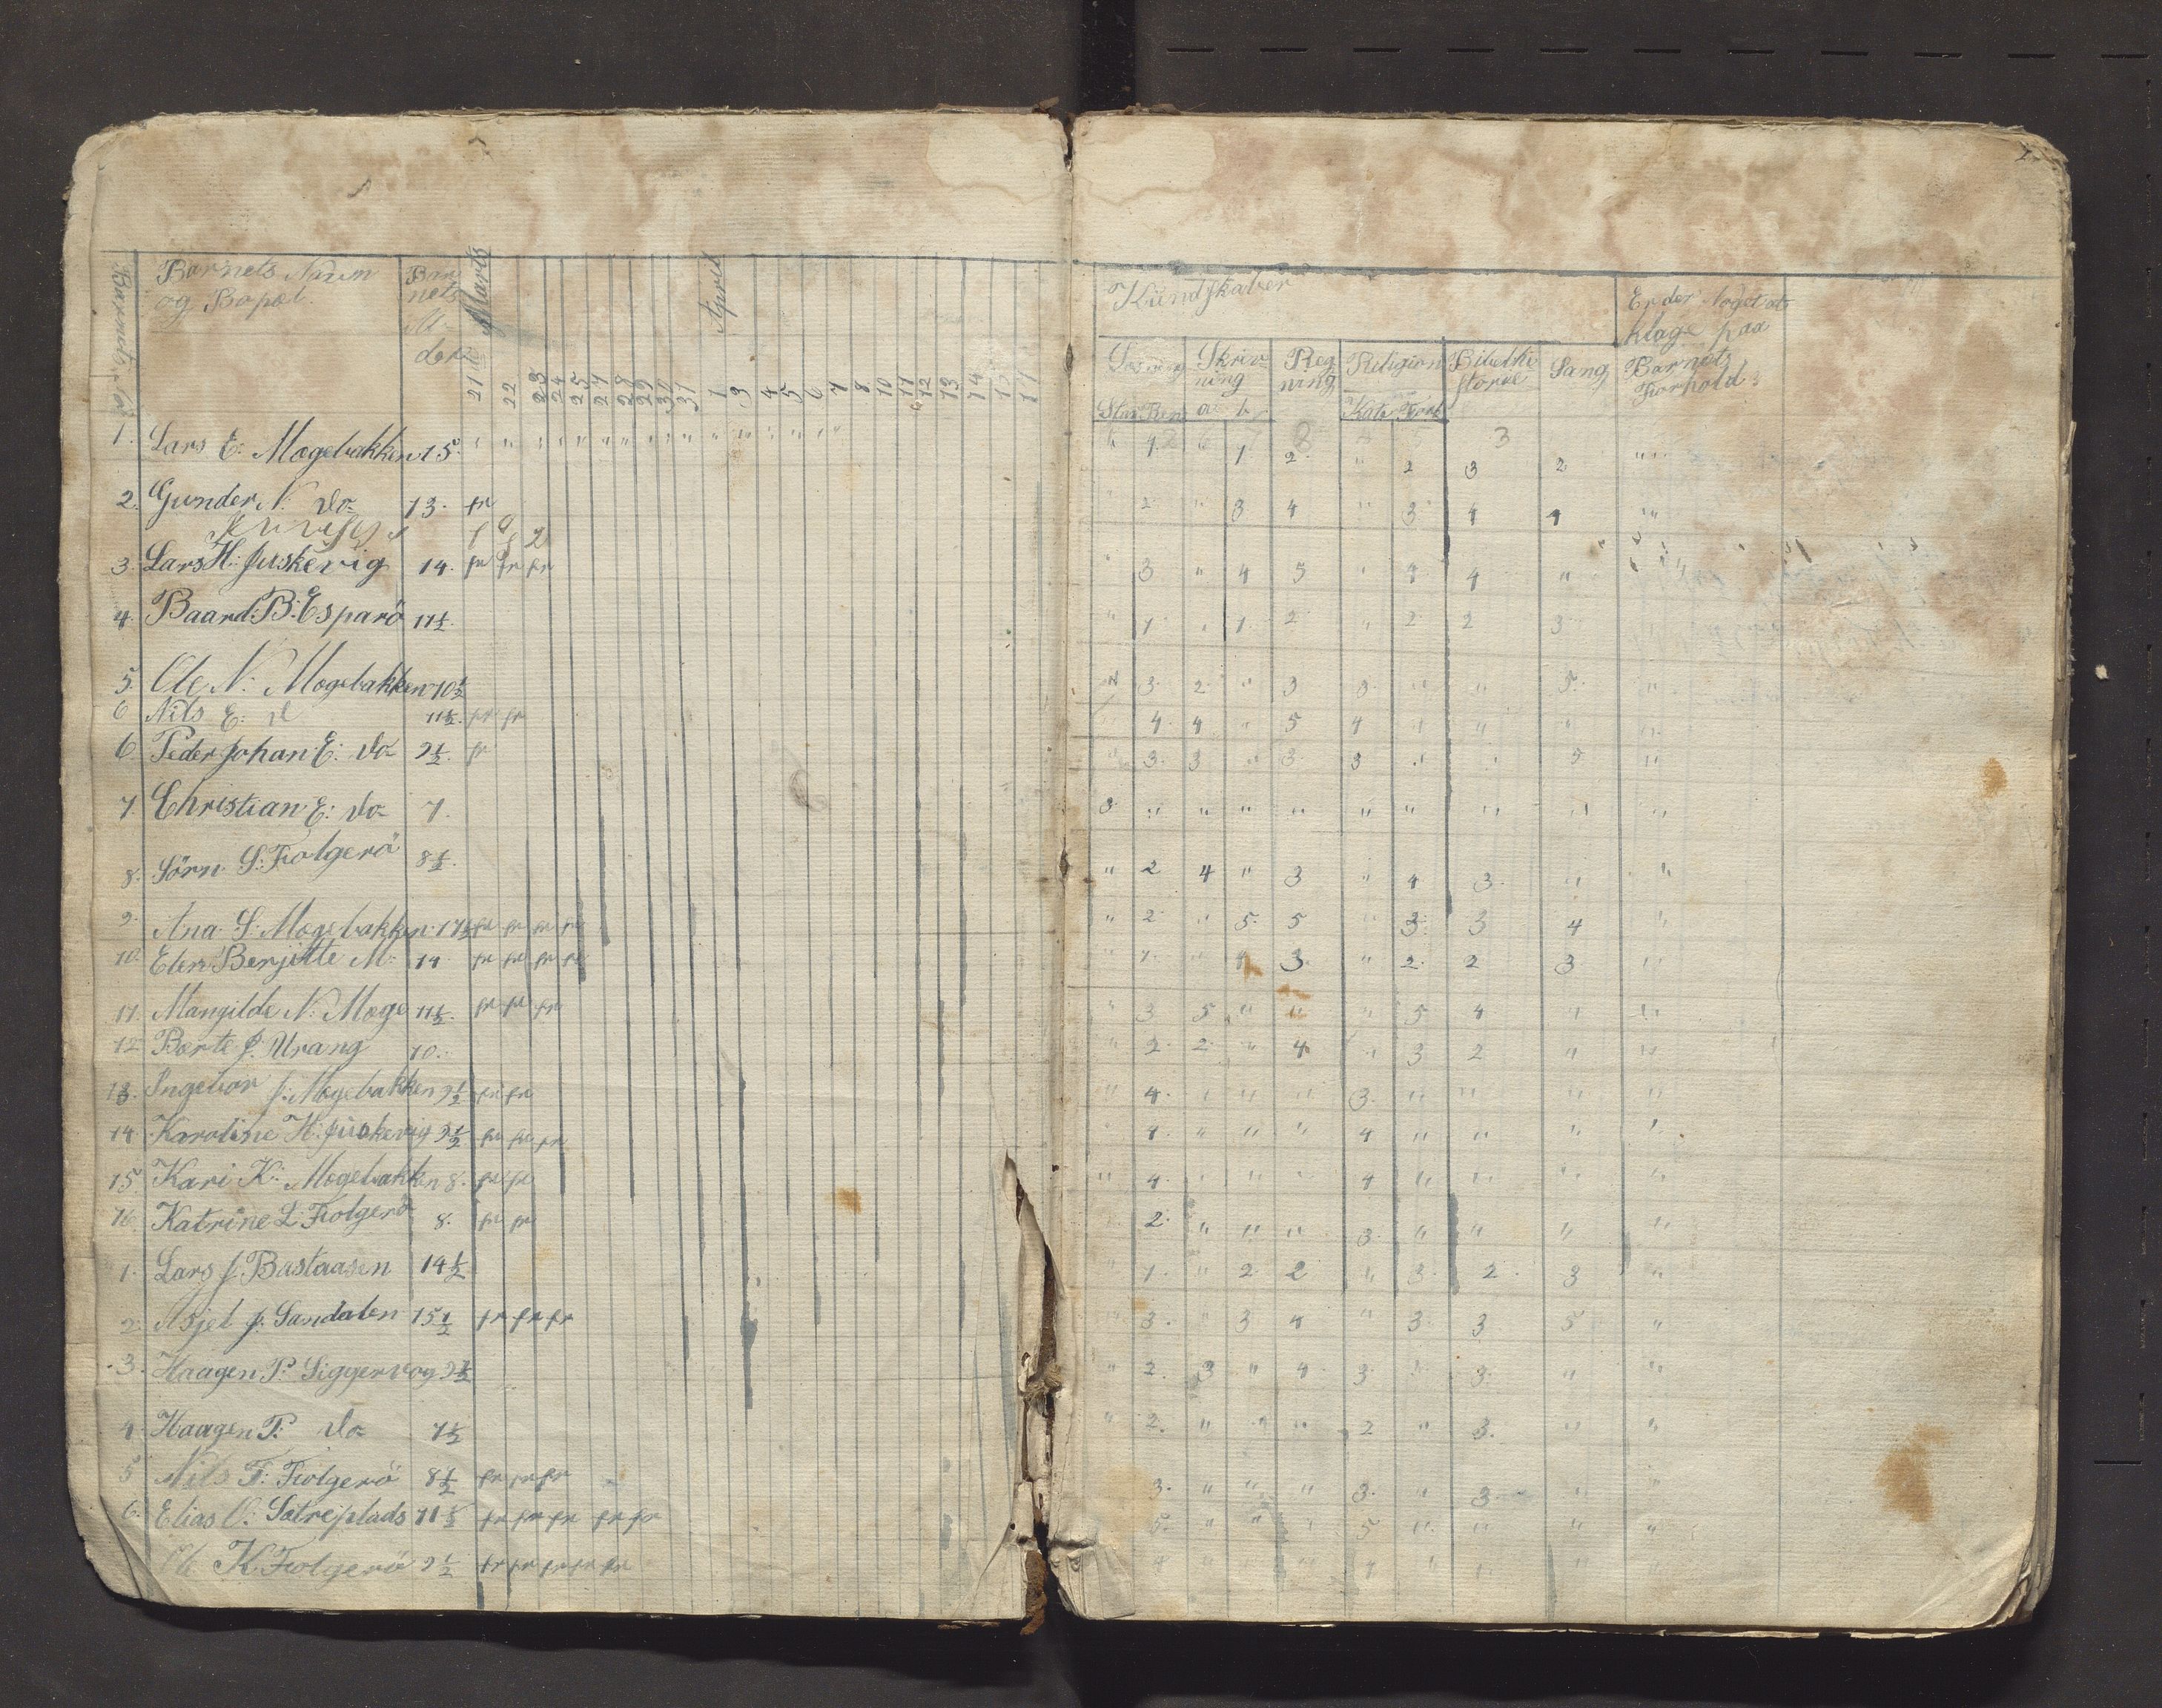 Barnets No
Barnets Navn og Bopæl.
Barnets Alder
Marts
April
21 22 23 24 25 27 28 29 30 31 1 3 4 5 6 7 8 10 11 12 13 14 15 17
Kundskaber
Er der Noget at klage paa Barnets Forhold?
Læsning Skrivning Regning Religion Bibelhistorie Sang
Stav Ren a b Kate Forkl
1. Lars E: Mogebakken 15 " 1. " 1 2 " 2 3 2 "
2. Gunder N. do 13. fr " 2 " 3 4 " 3 4 4 "
3. Lars H: Juskevig 14. fr fr fr " 3 " 4 5 " 4 4 " "
4. Baard B: Esparö 11½. " 1 " 1 2 " 2 2 3 "
5. Ole N: Mogebakken 10½ " 3 2 " 3 3 " " 5 "
6 Nils E: d 11½. fr fr " 4 4 " 5 4 " " " "
6. Peder Johan E: do 9½. fr " 3 3 " 3 3 " " 5 "
7. Christian E: do 7. 3 " " " " " " " " "
8. Sörn S: Folgerö 8½. " 2 4 " 3 " 4 3 " "
9. Ana S: Mogebakken 14½ fr fr fr fr " 2 " 5 5 " 3 3 4 "
10. Elen Berjitte M: 14 fr fr fr fr " 1 " 4 3 " 2 2 3 "
11. Mangilde N: Moge 11½. fr fr fr " 3 5 " " " 5 4 " "
12 Berte J: Urang 10. " 2 2 " 4 " 3 2 " "
13. Ingebor J: Mogebakken 9½ fr fr " 4 " " " 3 " " " "
14 Karoline H. Juskevig 9½ fr fr fr " 4 " " " 4 " " " "
15. Kari K: Mogebakken 8. fr fr " 4 " " " 4 " " " "
16. Katrine L: Folgerö 8. fr fr " 2 " " " 3 " " " "
1. Lars J. Bastaasen 14½ " 1 " 2 2 " 3 2 3 "
2. Asjel J: Sandalen 15½ fr fr fr " 3 " 3 4 " 3 3 5 "
3. Haagen P: Siggervog 9½ " 2 3 " 4 3 " 3 " "
4. Haagen P: do 7½ " 2 " " " 2 " 3 " "
5 Nils T: Folgerö 8½ fr fr fr 3 " " " 3 " 3 " "
6. Elias O: Sætreplads 11½ fr fr fr fr fr 5 " " " 5 " " " "
K. Folgerö 9½ fr fr fr fr fr 4 " " " 4 " " " "